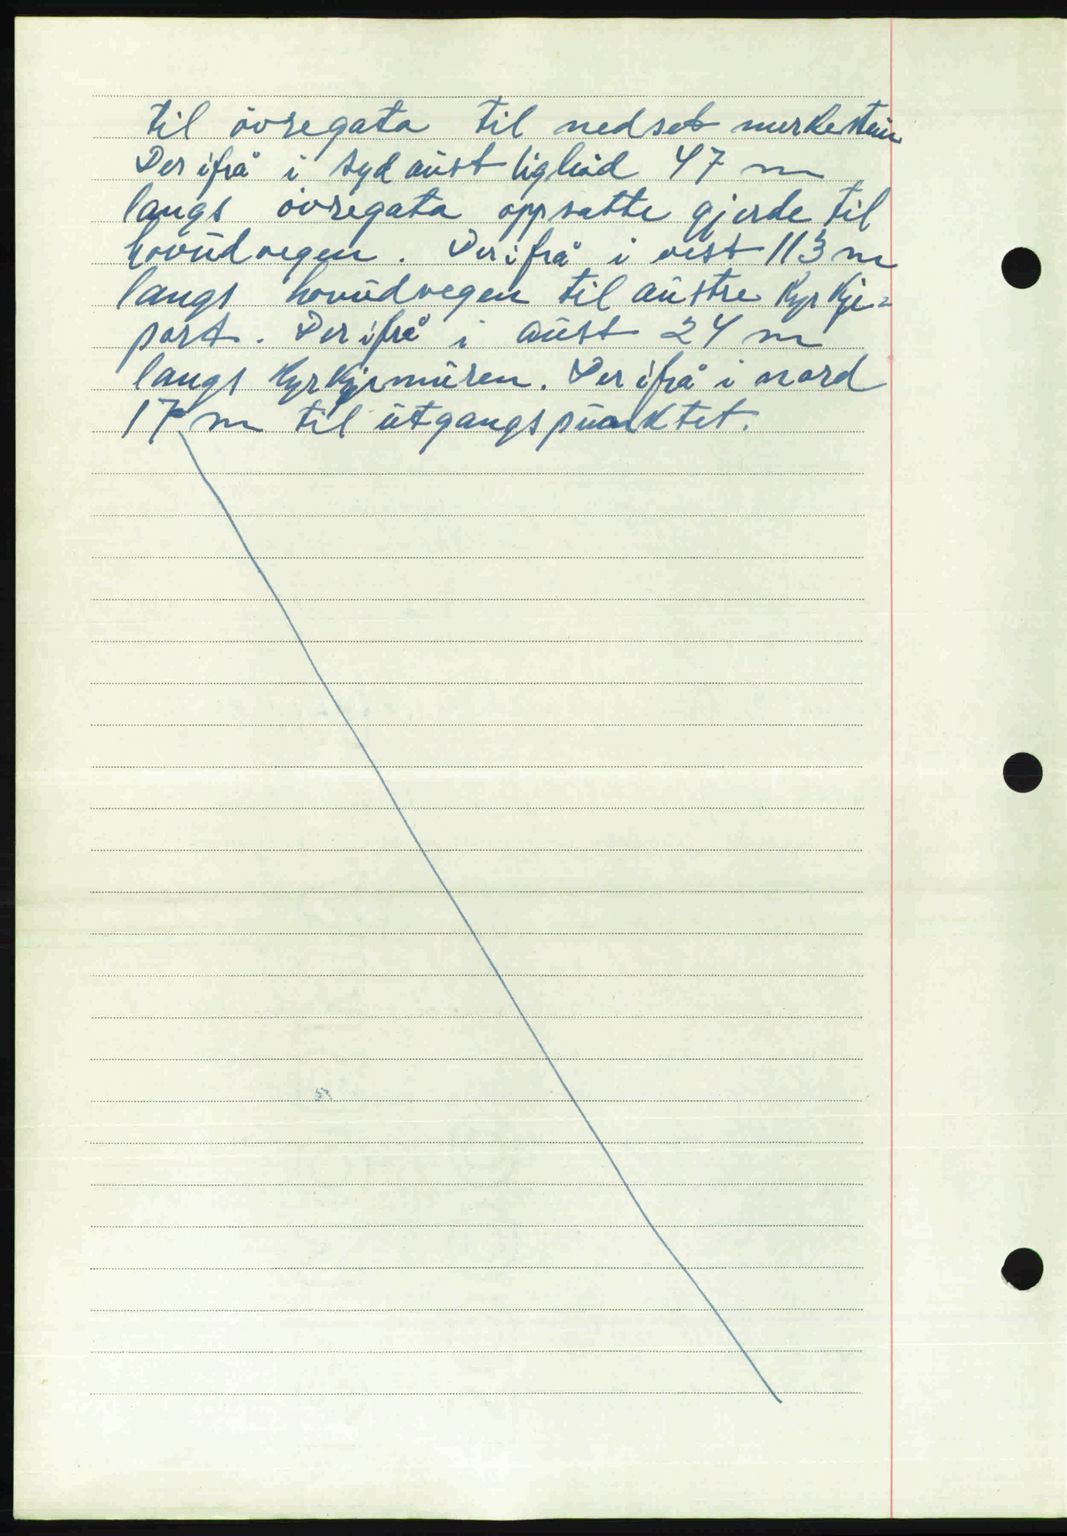 til övregata til nedset merkestein
Der ifrå i syd aust lighåd 47 m
langs övregata oppsatte gjerde til
hovudvegen. Der ifrå i vest 113 m
langs hovudvegen til austre Kyrkje=
port. Der ifrå i aust 24 m
langs Kyrkjemuren. Der ifrå i nord
17 m til utgangspunktet.